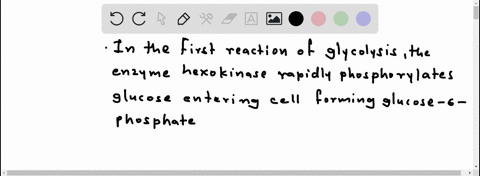 · In the first reaction of glycolysis, the
enzyme hexokinase rapidly phosphorylates
glucose entering cell forming glucose-6-
phosphate